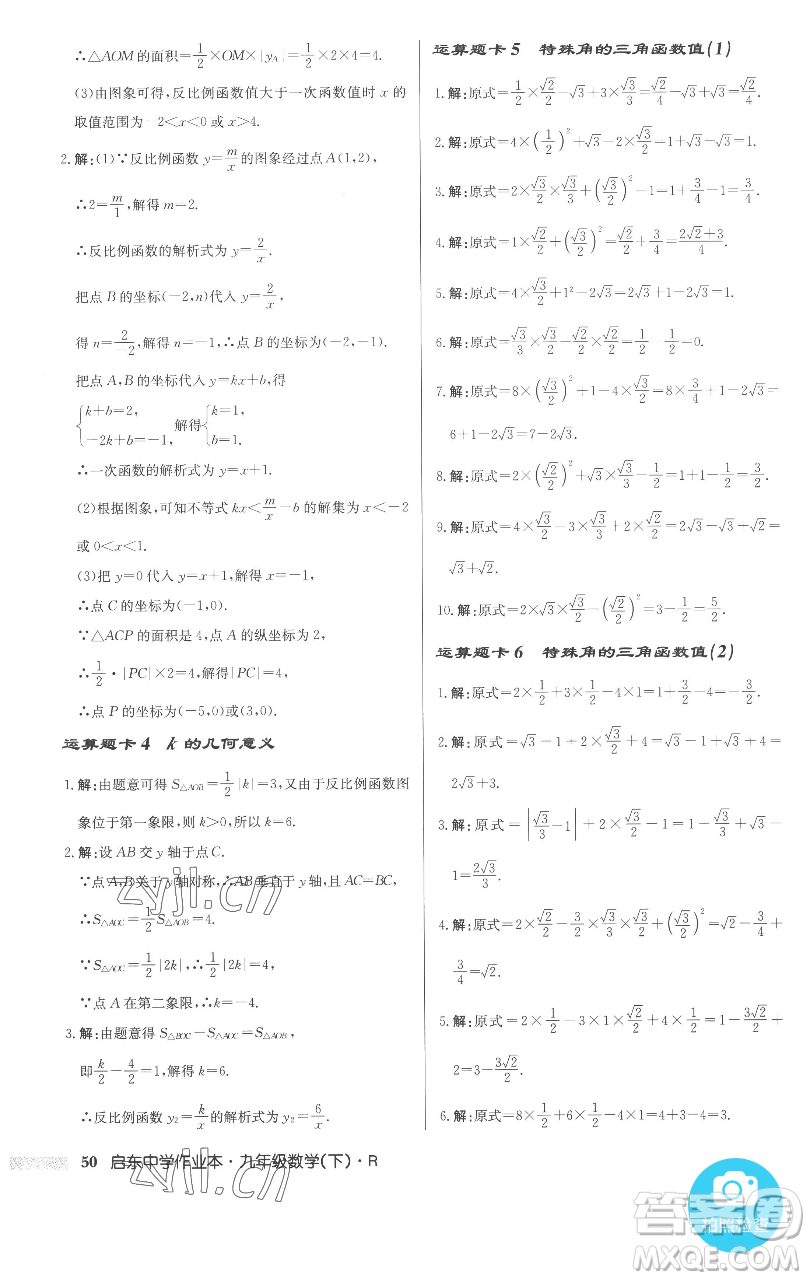 ∴△AOM的面积=1/2×OM×|y_A|=1/2×2×4=4.
(3)由图象可得,反比例函数值大于一次函数值时x的
取值范围为-2<x<0或x>4.
2.解:(1)∵反比例函数y=m/x的图象经过点A(1,2),
∴2=m/1,解得m=2.
∴反比例函数的解析式为y=2/x.
把点B的坐标(-2,n)代入y=2/x,
得n=2/-2,解得n=-1;∴点B的坐标为(-2,-1).
把点A,B的坐标代入y=kx+b,得
{k+b=2, -2k+b=-1, 解得{k=1, b=1.
∴一次函数的解析式为y=x+1.
(2)根据图象,可知不等式kx<m/x-b的解集为x<-2
或0<x<1.
(3)把y=0代入y=x+1,解得x=-1.
∴点C的坐标为(-1,0).
∵△ACP的面积是4,点A的纵坐标为2,
∴1/2·|PC|×2=4,解得|PC|=4,
∴点P的坐标为(-5,0)或(3,0).
运算题卡4 k的几何意义
1.解:由题意可得S△AOB=1/2|k|=3,又由于反比例函数图
象位于第一象限,则k>0,所以k=6.
2.解:设AB交y轴于点C.
∵点A,B关于y轴对称,∴AB垂直于y轴,且AC=BC,
∴S△AOC=1/2S△AOB=4.
∵S△AOC=1/2|2k|,∴1/2|2k|=4,
∵点A在第二象限,∴k=-4.
3.解:由题意得S△BOC-S△AOC=S△AOB,
即k/2-4/2=1,解得k=6.
∴反比例函数y₂=k/x的解析式为y₂=6/x.
50 启东中学作业本·九年级数学(下)·R
运算题卡5 特殊角的三角函数值(1)
1.解:原式=1/2×√2/2-√3+3×√3/3=√2/4-√3+√3=√2/4.
2.解:原式=4×(1/2)²+√3-2×√3/2=1+√3-√3=1.
3.解:原式=2×√3/2×√3/3+(√3/2)²-1=1+3/4-1=3/4.
4.解:原式=1×√3/2+(√3/2)²=√3/2+3/4=(2√3+3)/4.
5.解:原式=4×√3/2+1²-2√3=2√3+1-2√3=1.
6.解:原式=√3/3×√3/2-√2/2×√2/2=1/2 1/2=0.
7.解:原式=8×(√3/2)²+1-4×√3/2=8×3/4+1-2√3=
6+1-2√3=7-2√3.
8.解:原式=2×(√2/2)²+√3/2×√3-1/2=1+3/2-1/2=2.
9.解:原式=4×√3/2-3×√3/3+2×√2/2=2√3-√3+√2=
√3+√2.
10.解:原式=2×√3×√3/2-(√2/2)²=3-1/2=5/2.
运算题卡6 特殊角的三角函数值(2)
1.解:原式=2×1/2+3×1/3-4×1=1+1/3-4=
2.解:原式=4×√3/2-1+4=
2√3+3.
3.解:原式=|√3/3-1|+2×√3/2-1=1-√3/3+√3-
1=2√3/3.
4.解:原式=2×1/2×√2/2+
3/4=√2.
5.解:原式=4×1/2-3×1×√2/2+2×1/2=2-3√2/2+1
2=3-3√2/2.
6.解:原式=8×1/2+
zyjl.cn
zyjl.cn
拍照检查
答案圈
MXQE.COM